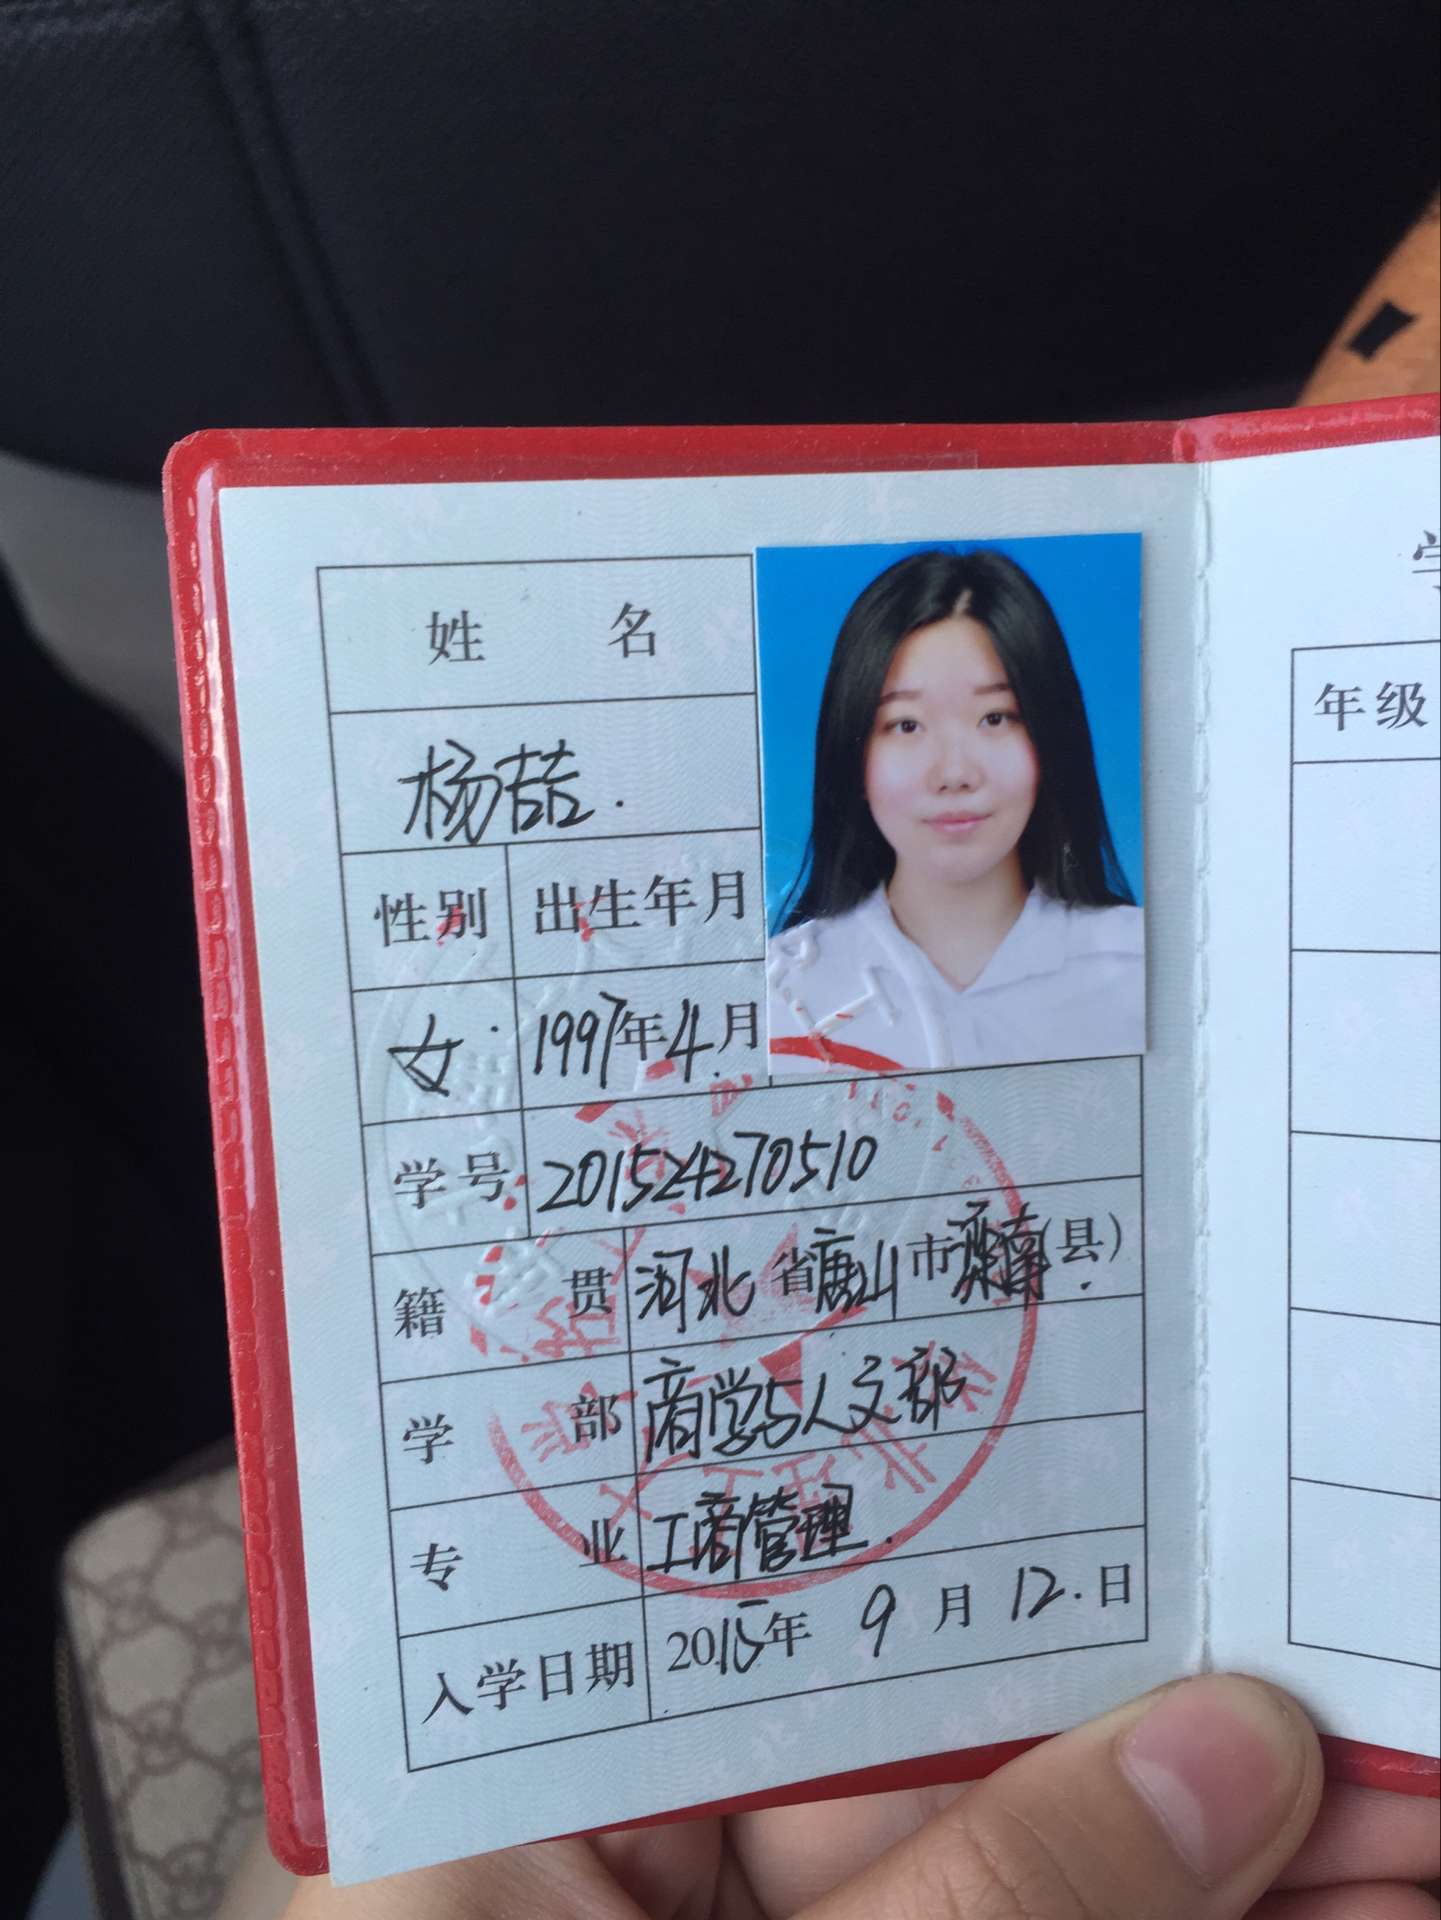 姓 名
杨喆.
性别 出生年月
女. 1997年4.月
学号 201524270510
籍 贯 河北省唐山市滦南(县).
学 部 商学与人文部
专 业 工商管理.
入学日期 2015年 9 月 12.日
年级